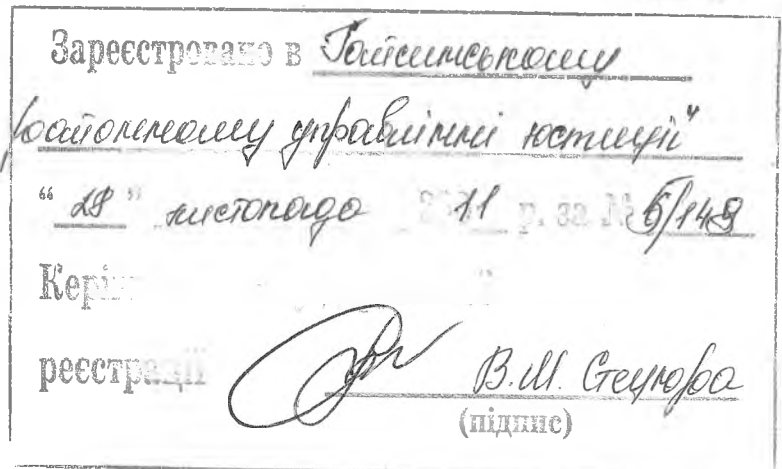 Зареєстровано в Гайсинському
районному управлінні юстиції"
"28" листопада 2011 р. за № 5/149
реєстрації В.М.
(підпис)